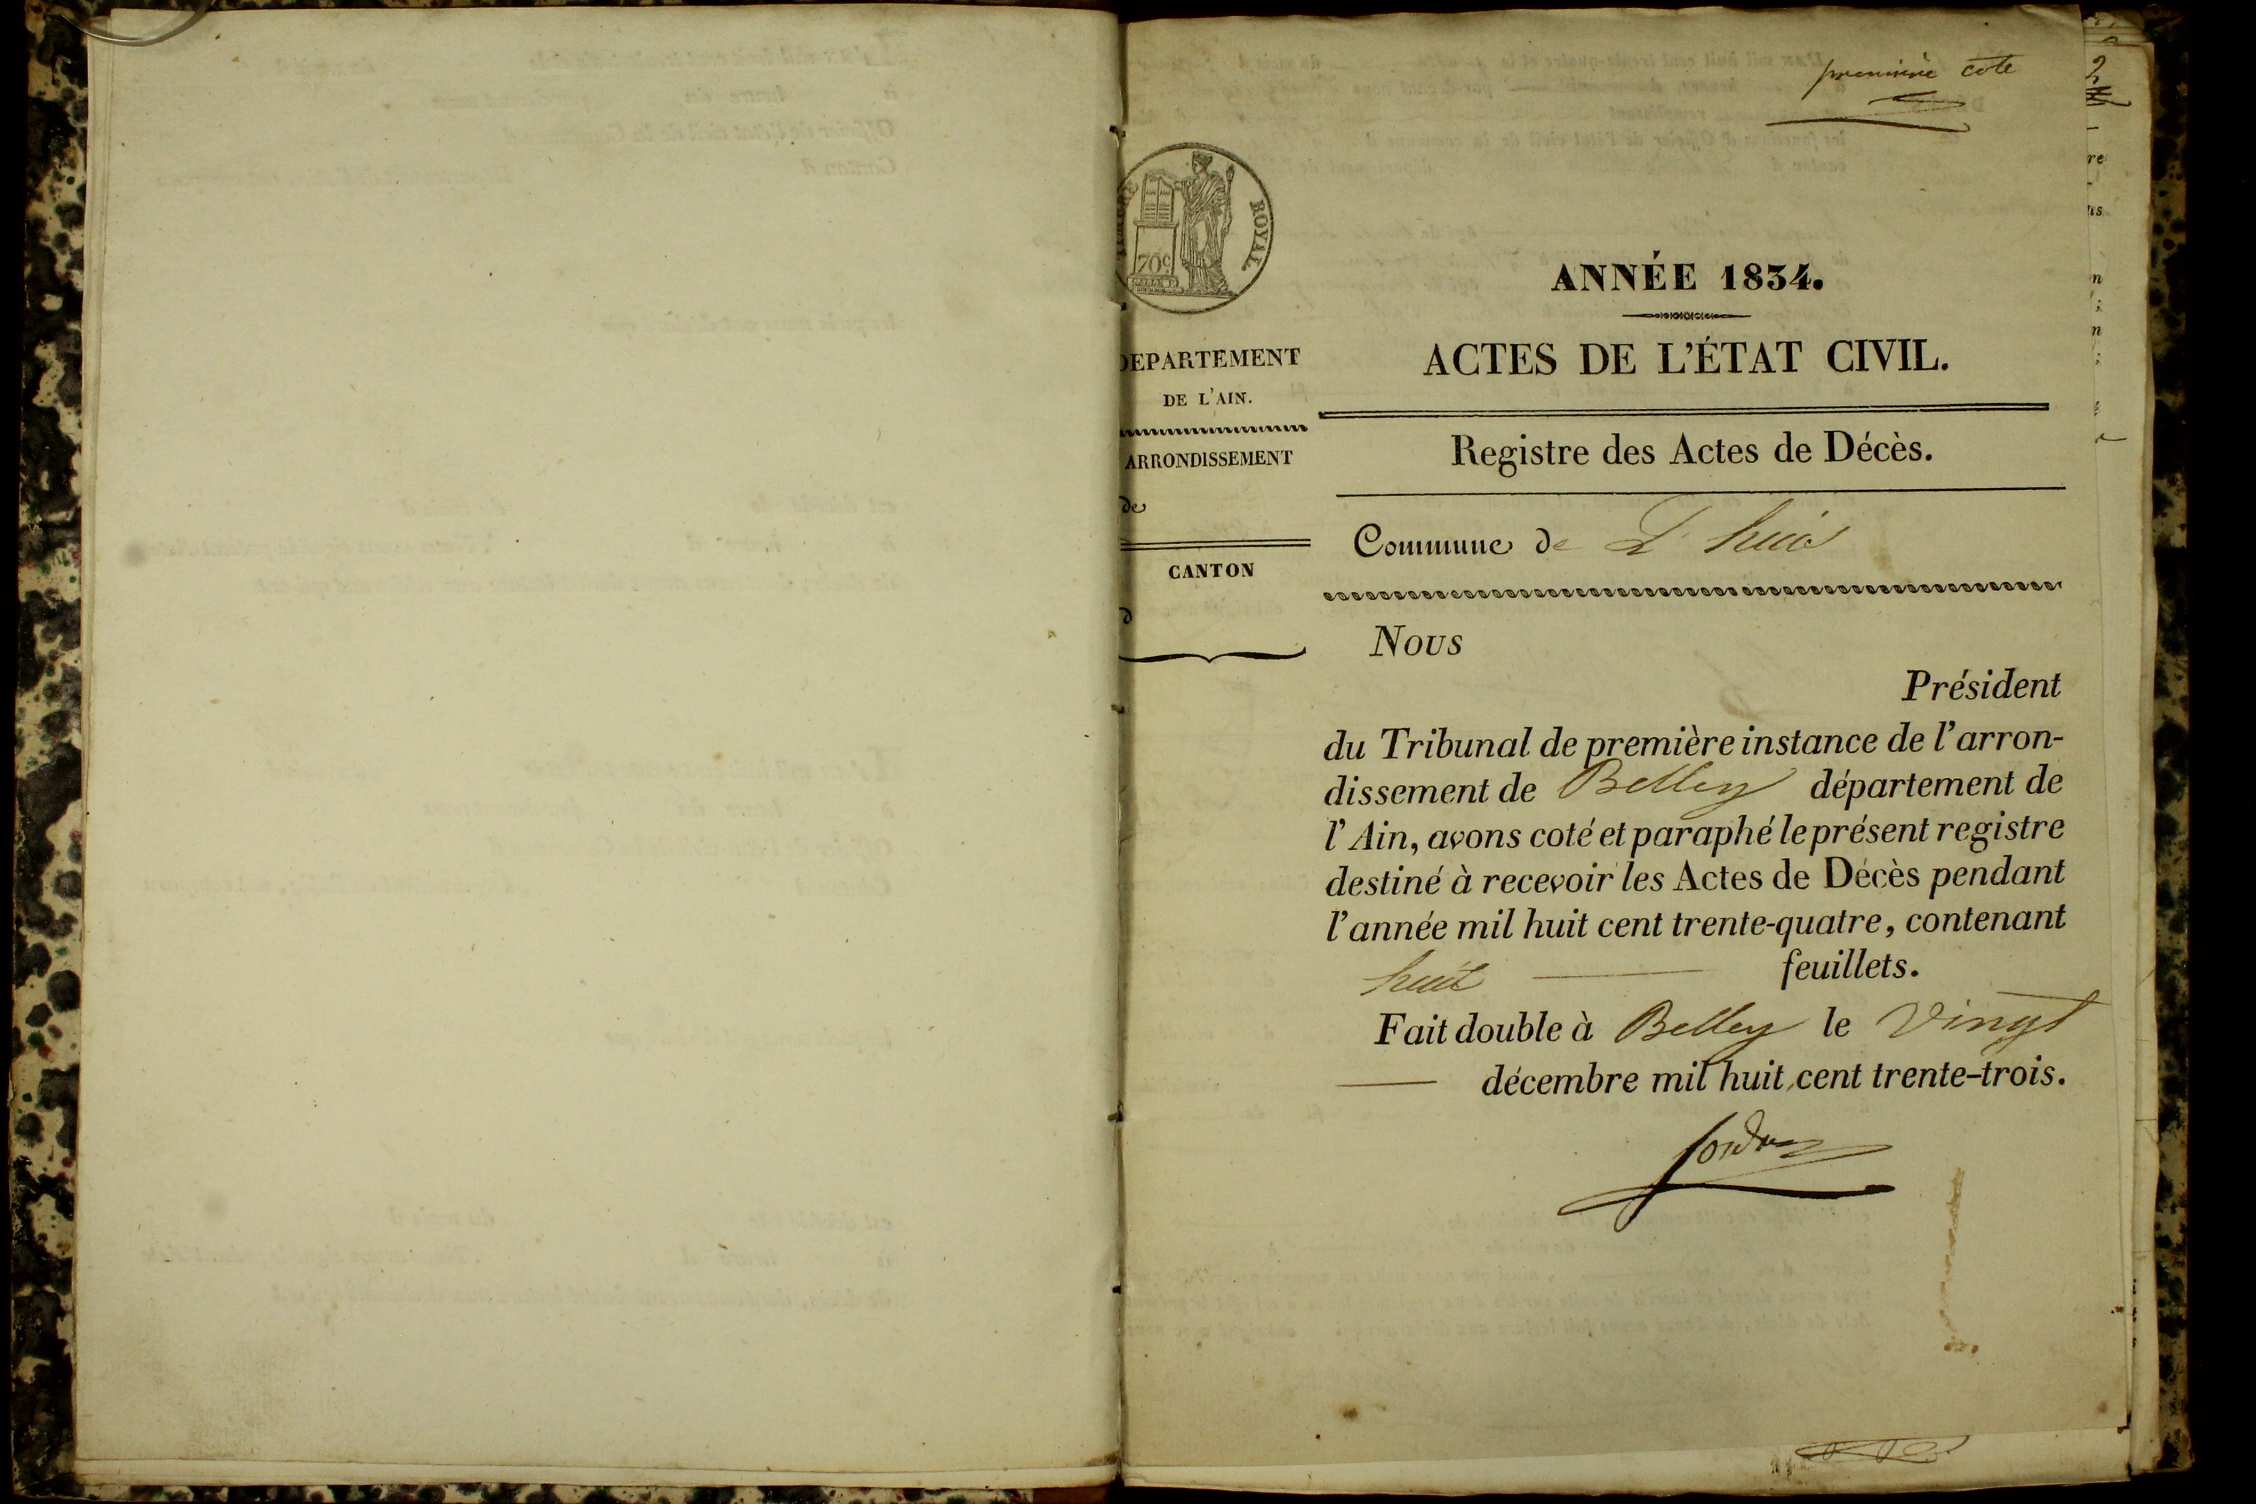 première cote
ROYAL
70c
ANNÉE 1834.
DEPARTEMENT
DE L'AIN.
ARRONDISSEMENT
de
CANTON
d
ACTES DE L'ÉTAT CIVIL.
Registre des Actes de Décès.
Commune de L'huis
Nous
Président
du Tribunal de première instance de l'arron-
dissement de Belley département de
l'Ain, avons coté et paraphé le présent registre
destiné à recevoir les Actes de Décès pendant
l'année mil huit cent trente-quatre, contenant
huit feuillets.
Fait double à Belley le Vingt
décembre mil huit cent trente-trois.